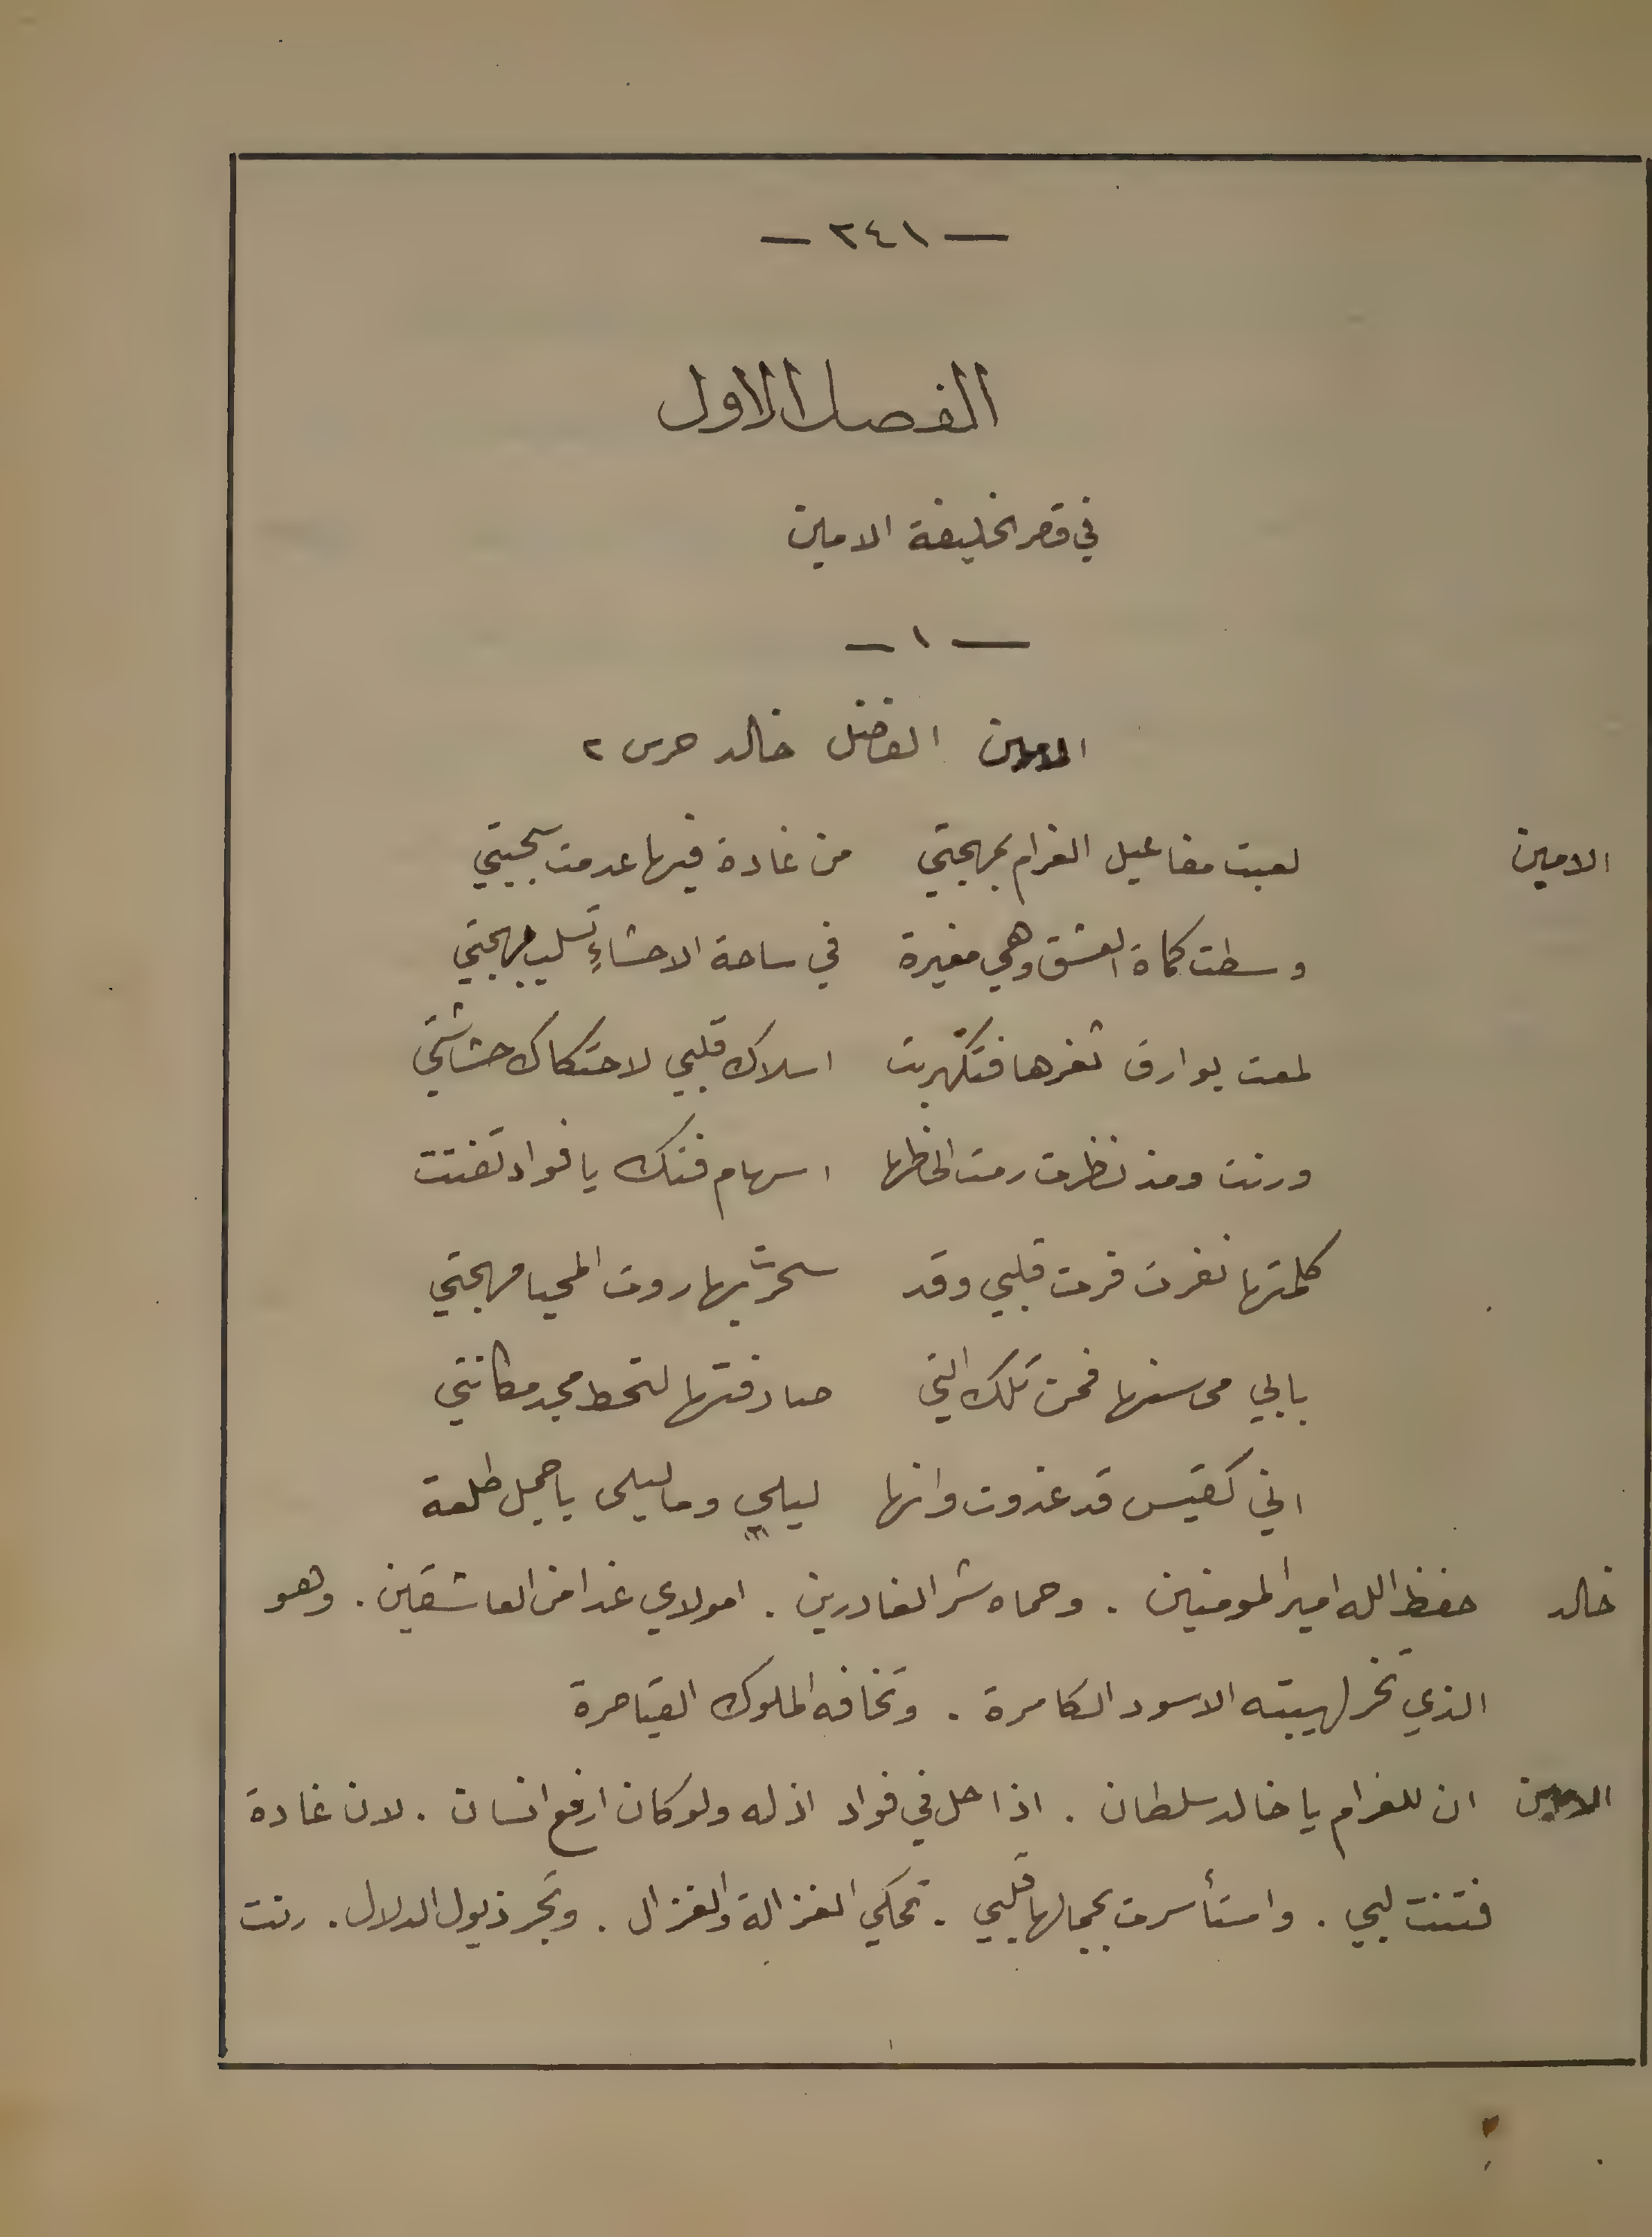 — ٢٤١ —
الفصل الاول
في قصر الخليفة الامين
— ١ —
الامين الفضل خالد حرس ٢
الامين لعبت مفاعيل الغرام بمهجتي من غادة فيها عدمت سجيتي
وسطت كماة العشق وهي مغيرة في ساحة الاحشاءِ تسلب مهجتي
لمعت بوارق ثغرها فتكهربت اسلاك قلبي لاحتكاك حشاشتي
ورنت ومذ نظرت رمت الحاظها اسهام فتك يا فواد تفتت
كلمتها نفرت فرت قلبي وقد سحرت بهاروت المحيا مهجتي
بابي محاسنها فمن تلك التي صادفتها لتحط مجد مكانتي
اني كقيس قد غدوت وانها ليلي وما ليلى باجمل طلعة
خالد حفظ الله امير المومنين . وحماه شر الغادرين . امولاي غدا من العاشقين . وهو
الذي تخر لهيبته الاسود الكاسرة . وتخافه الملوك القياصرة
الامين ان للغرام يا خالد سلطان . اذا حل في فواد اذله ولو كان ارفع انسان . لان غادة
فتنت لبي . واستأسرت بجمالها قلبي . تحكي الغزالة والغزال . وتجر ذيول الدلال . رنت